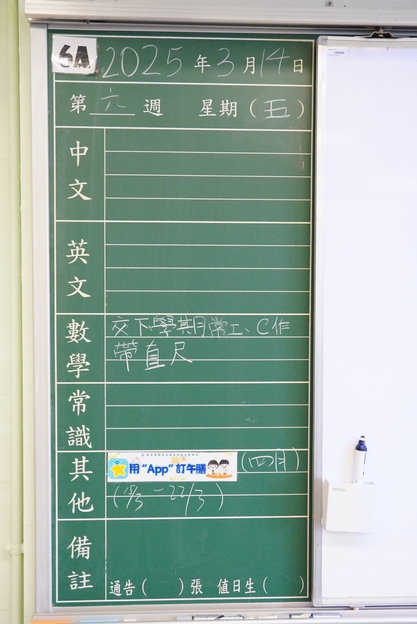 6A 2025年3月14日
第六週 星期(五)
中文
英文
數學 交下學期常工、C作
帶直尺
常識
其他 用“App”訂午膳 (四月)
備註
通告( )張 值日生( )
EPSON